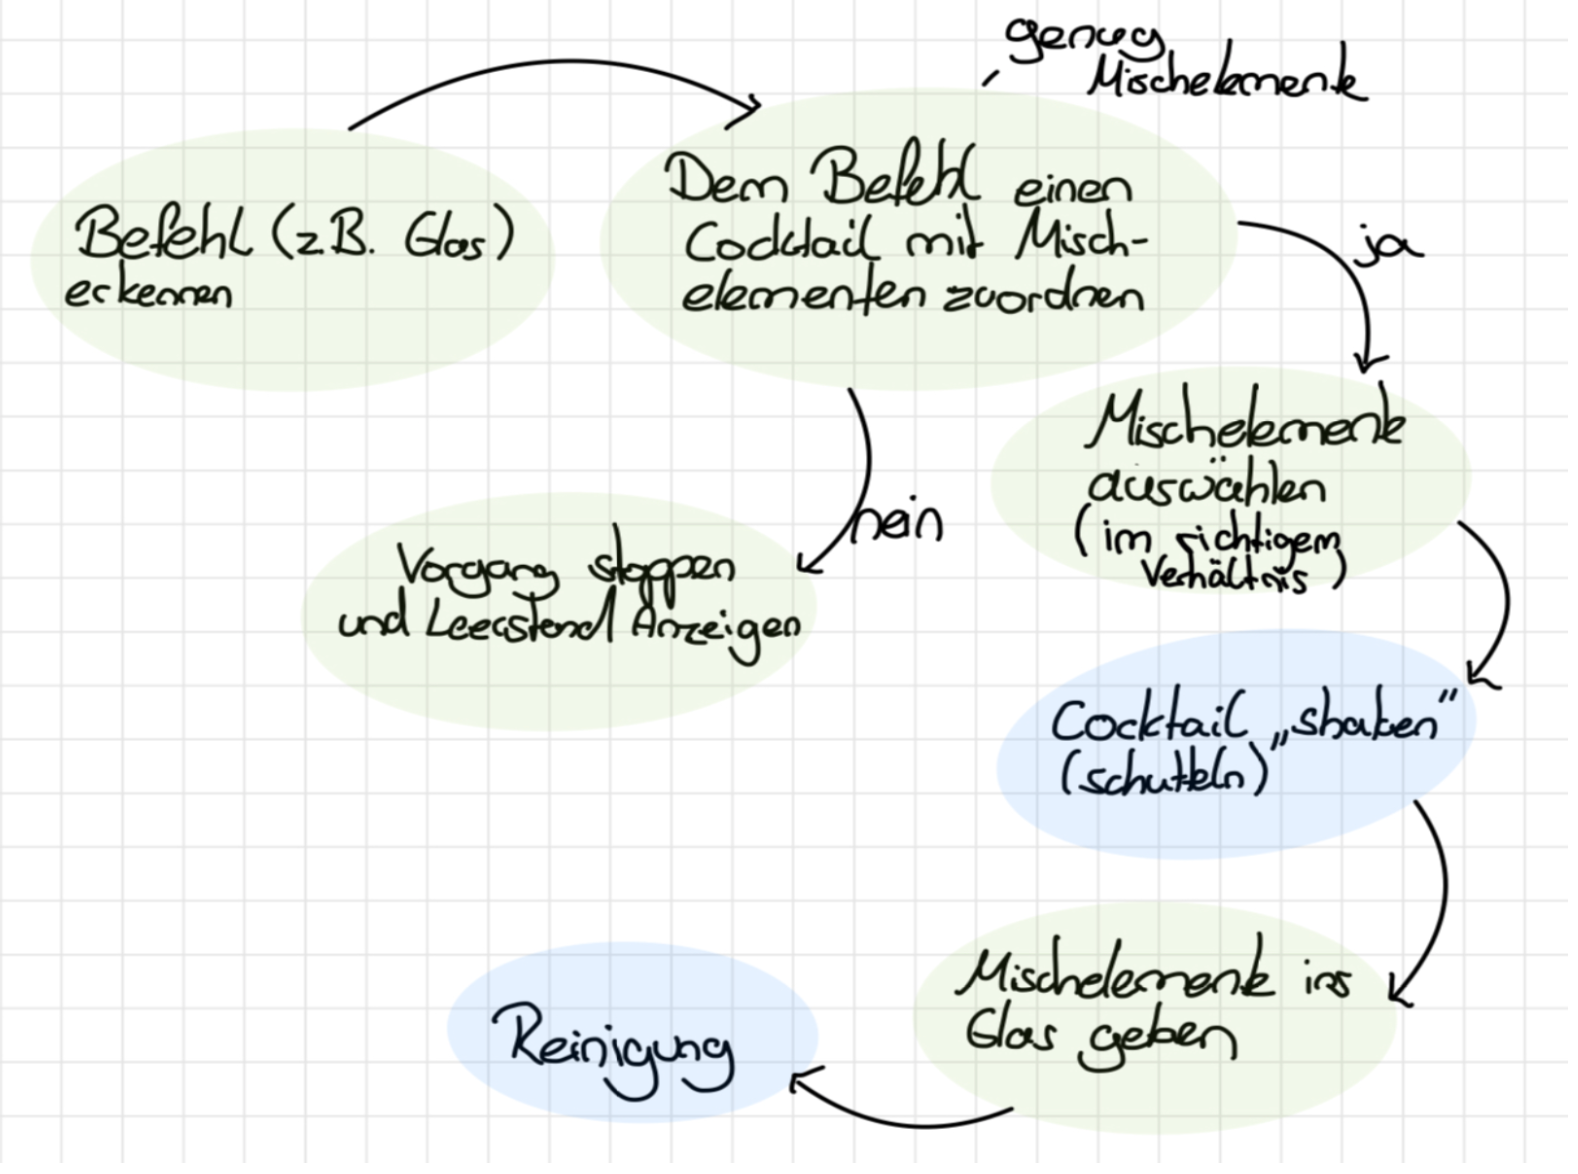 genug
Mischelemente
Befehl (z.B. Glas)
erkennen
Dem Befehl einen
Cocktail mit Misch-
elementen zuordnen
ja
nein
Mischelemente
auswählen
(im richtigen
Verhältnis)
Vorgang stoppen
und Leerstand Anzeigen
Cocktail „shaken“
(schütteln)
Mischelemente ins
Glas geben
Reinigung